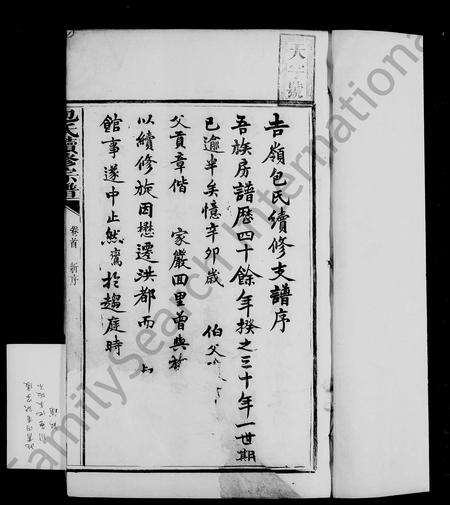 天字號
吉嶺包氏續修支譜序
吾族房譜歷四十餘年揆之三十年一世期
已逾半矣憶辛卯歲 伯父
父貢章偕 家嚴回里曾與
以續修旋因懋遷洪都而
館事遂中止然鳶於趨庭時
包氏續修宗譜
卷首 新序
FamilySearch International